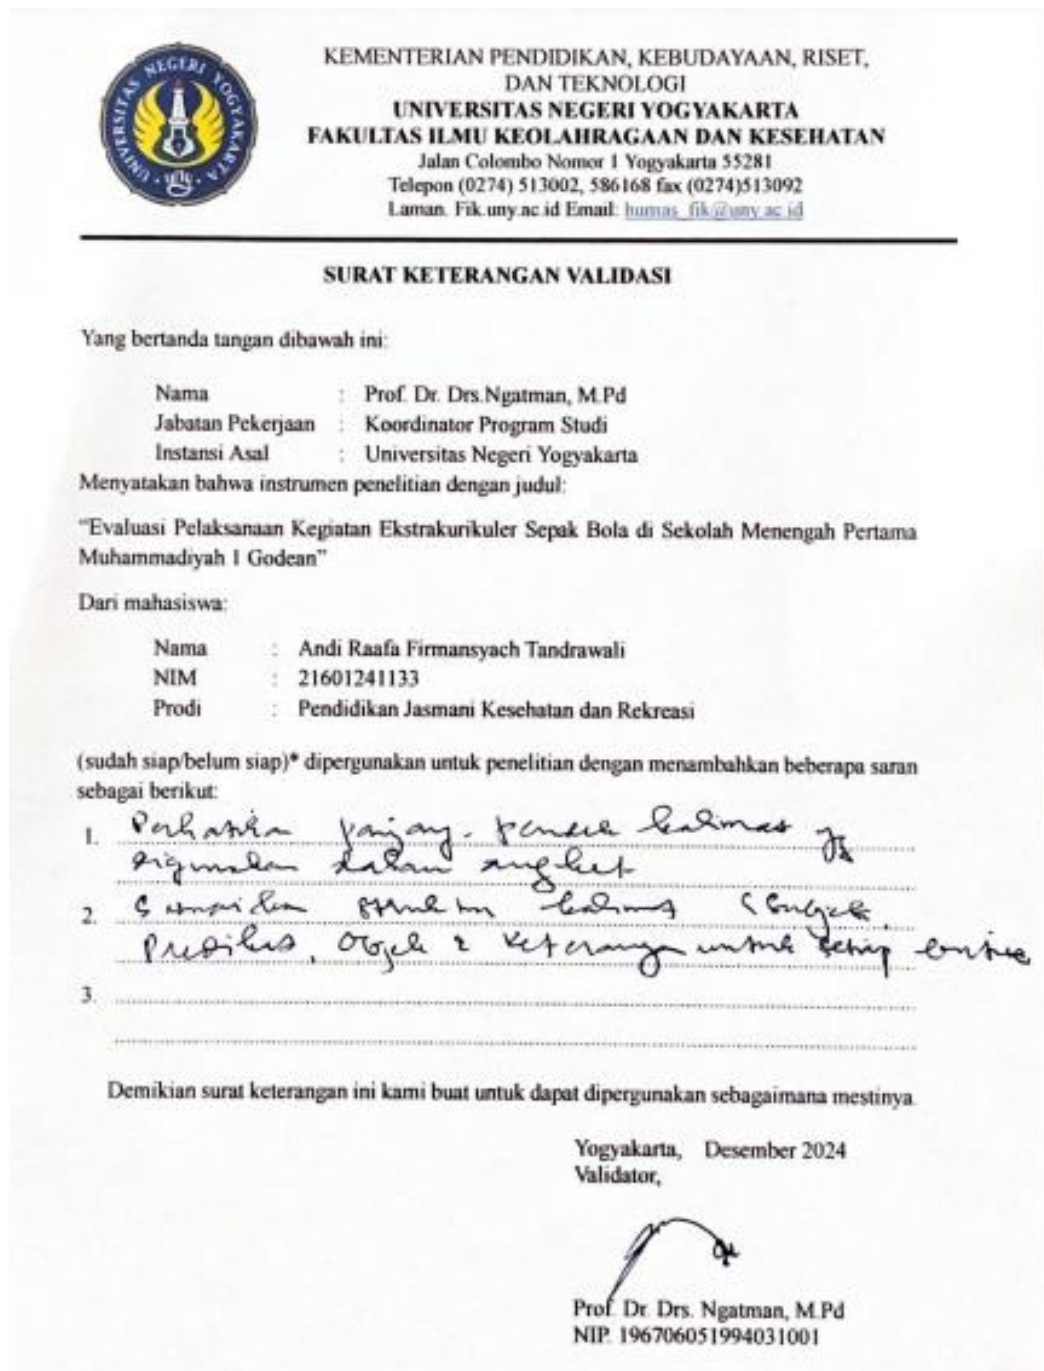 UNIVERSITAS NEGERI YOGYAKARTA
UNY
KEMENTERIAN PENDIDIKAN, KEBUDAYAAN, RISET,
DAN TEKNOLOGI
UNIVERSITAS NEGERI YOGYAKARTA
FAKULTAS ILMU KEOLAHRAGAAN DAN KESEHATAN
Jalan Colombo Nomor 1 Yogyakarta 55281
Telepon (0274) 513002, 586168 fax (0274)513092
Laman. Fik.uny.ac.id Email: humas_fik@uny.ac.id
SURAT KETERANGAN VALIDASI
Yang bertanda tangan dibawah ini:
Nama : Prof. Dr. Drs.Ngatman, M.Pd
Jabatan Pekerjaan : Koordinator Program Studi
Instansi Asal : Universitas Negeri Yogyakarta
Menyatakan bahwa instrumen penelitian dengan judul:
"Evaluasi Pelaksanaan Kegiatan Ekstrakurikuler Sepak Bola di Sekolah Menengah Pertama
Muhammadiyah 1 Godean"
Dari mahasiswa:
Nama : Andi Raafa Firmansyach Tandrawali
NIM : 21601241133
Prodi : Pendidikan Jasmani Kesehatan dan Rekreasi
(sudah siap/belum siap)* dipergunakan untuk penelitian dengan menambahkan beberapa saran
sebagai berikut:
1. Perhatikan panjang-pendek kalimat yg
digunakan dalam angket
2. struktur kalimat (Subjek,
Predikat, Objek & Keterangan untuk setiap
3.
Demikian surat keterangan ini kami buat untuk dapat dipergunakan sebagaimana mestinya.
Yogyakarta, Desember 2024
Validator,
Prof. Dr. Drs. Ngatman, M.Pd
NIP. 196706051994031001